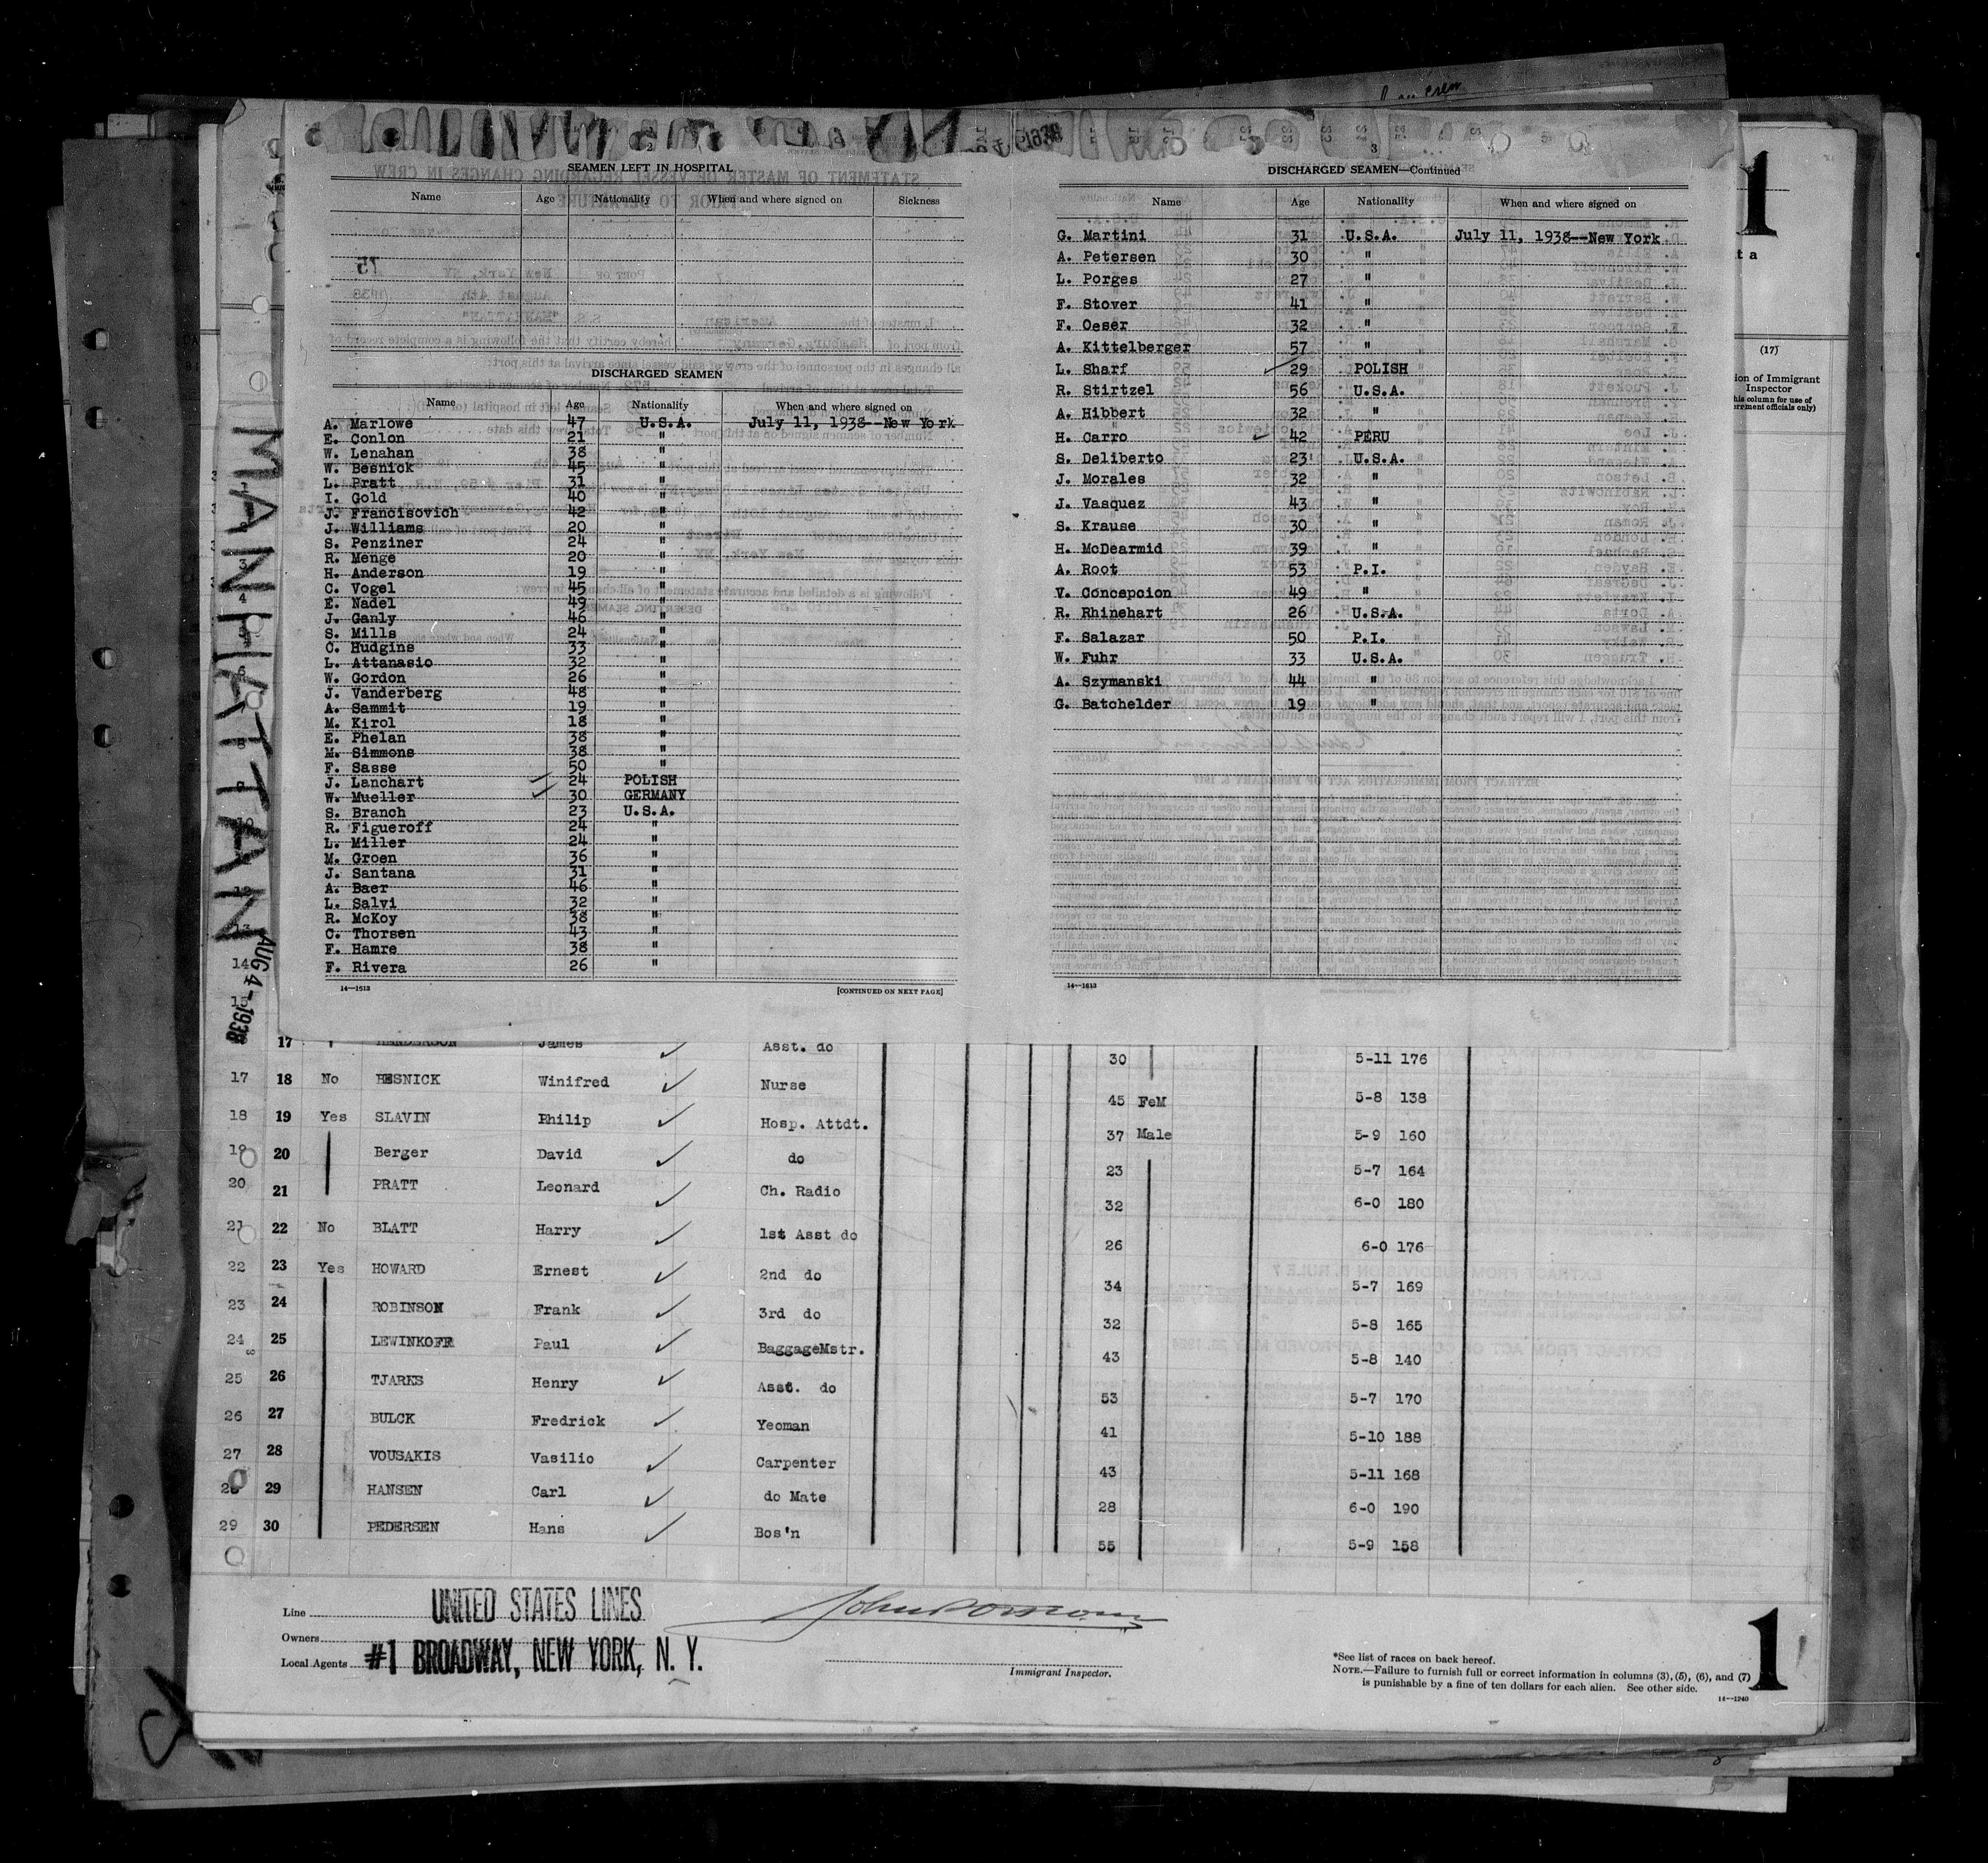 MANHATTAN
AUG 4 - 1938
SEAMEN LEFT IN HOSPITAL
Name Age Nationality When and where signed on Sickness
DISCHARGED SEAMEN
Name Age Nationality When and where signed on
A. Marlowe 47 U.S.A. July 11, 1938--New York
E. Conlon 21 "
W. Lenahan 38 "
W. Besnick 45 "
L. Pratt 31 "
I. Gold 40 "
J. Francisovich 42 "
J. Williams 20 "
S. Penziner 24 "
R. Menge 20 "
H. Anderson 19 "
C. Vogel 45 "
E. Nadel 49 "
J. Ganly 46 "
S. Mills 24 "
C. Hudgins 33 "
L. Attanasio 32 "
W. Gordon 26 "
J. Vanderberg 48 "
A. Sammit 19 "
M. Kirol 18 "
E. Phelan 38 "
M. Simmons 38 "
F. Sasse 50 "
J. Lanchart 24 POLISH
W. Mueller 30 GERMANY
S. Branch 23 U.S.A.
R. Figueroff 24 "
L. Miller 24 "
M. Groen 36 "
J. Santana 31 "
A. Baer 46 "
L. Salvi 32 "
R. McKoy 38 "
C. Thorsen 43 "
F. Hamre 38 "
F. Rivera 26 "
14—1513 [CONTINUED ON NEXT PAGE]
3
DISCHARGED SEAMEN—Continued
Name Age Nationality When and where signed on
G. Martini 31 U.S.A. July 11, 1938--New York
A. Petersen 30 "
L. Porges 27 "
F. Stover 41 "
F. Oeser 32 "
A. Kittelberger 57 "
L. Sharf 29 POLISH
R. Stirtzel 56 U.S.A.
A. Hibbert 32 "
H. Carro 42 PERU
S. Deliberto 23 U.S.A.
J. Morales 32 "
J. Vasquez 43 "
S. Krause 30 "
H. McDearmid 39 "
A. Root 53 P.I.
V. Concepcion 49 "
R. Rhinehart 26 U.S.A.
F. Salazar 50 P.I.
W. Fuhr 33 U.S.A.
A. Szymanski 44 "
G. Batchelder 19 "
14—1613
1
(17)
ion of Immigrant
Inspector
his column for use of
ernment officials only)
17 HENDERSON James Asst. do 30 5-11 176
17 18 No BESNICK Winifred Nurse 45 FeM 5-8 138
18 19 Yes SLAVIN Philip Hosp. Attdt. 37 Male 5-9 160
19 20 Berger David do 23 5-7 164
20 21 PRATT Leonard Ch. Radio 32 6-0 180
21 22 No BLATT Harry 1st Asst do 26 6-0 176
22 23 Yes HOWARD Ernest 2nd do 34 5-7 169
23 24 ROBINSON Frank 3rd do 32 5-8 165
24 25 LEWINKOFF Paul BaggageMstr. 43 5-8 140
25 26 TJARKS Henry Asst. do 53 5-7 170
26 27 BULCK Fredrick Yeoman 41 5-10 188
27 28 VOUSAKIS Vasilio Carpenter 43 5-11 168
28 29 HANSEN Carl do Mate 28 6-0 190
29 30 PEDERSEN Hans Bos'n 55 5-9 158
Line UNITED STATES LINES
Owners
Local Agents #1 BROADWAY, NEW YORK, N. Y.
Immigrant Inspector.
*See list of races on back hereof.
NOTE.—Failure to furnish full or correct information in columns (3), (5), (6), and (7)
is punishable by a fine of ten dollars for each alien. See other side.
14—1240
1